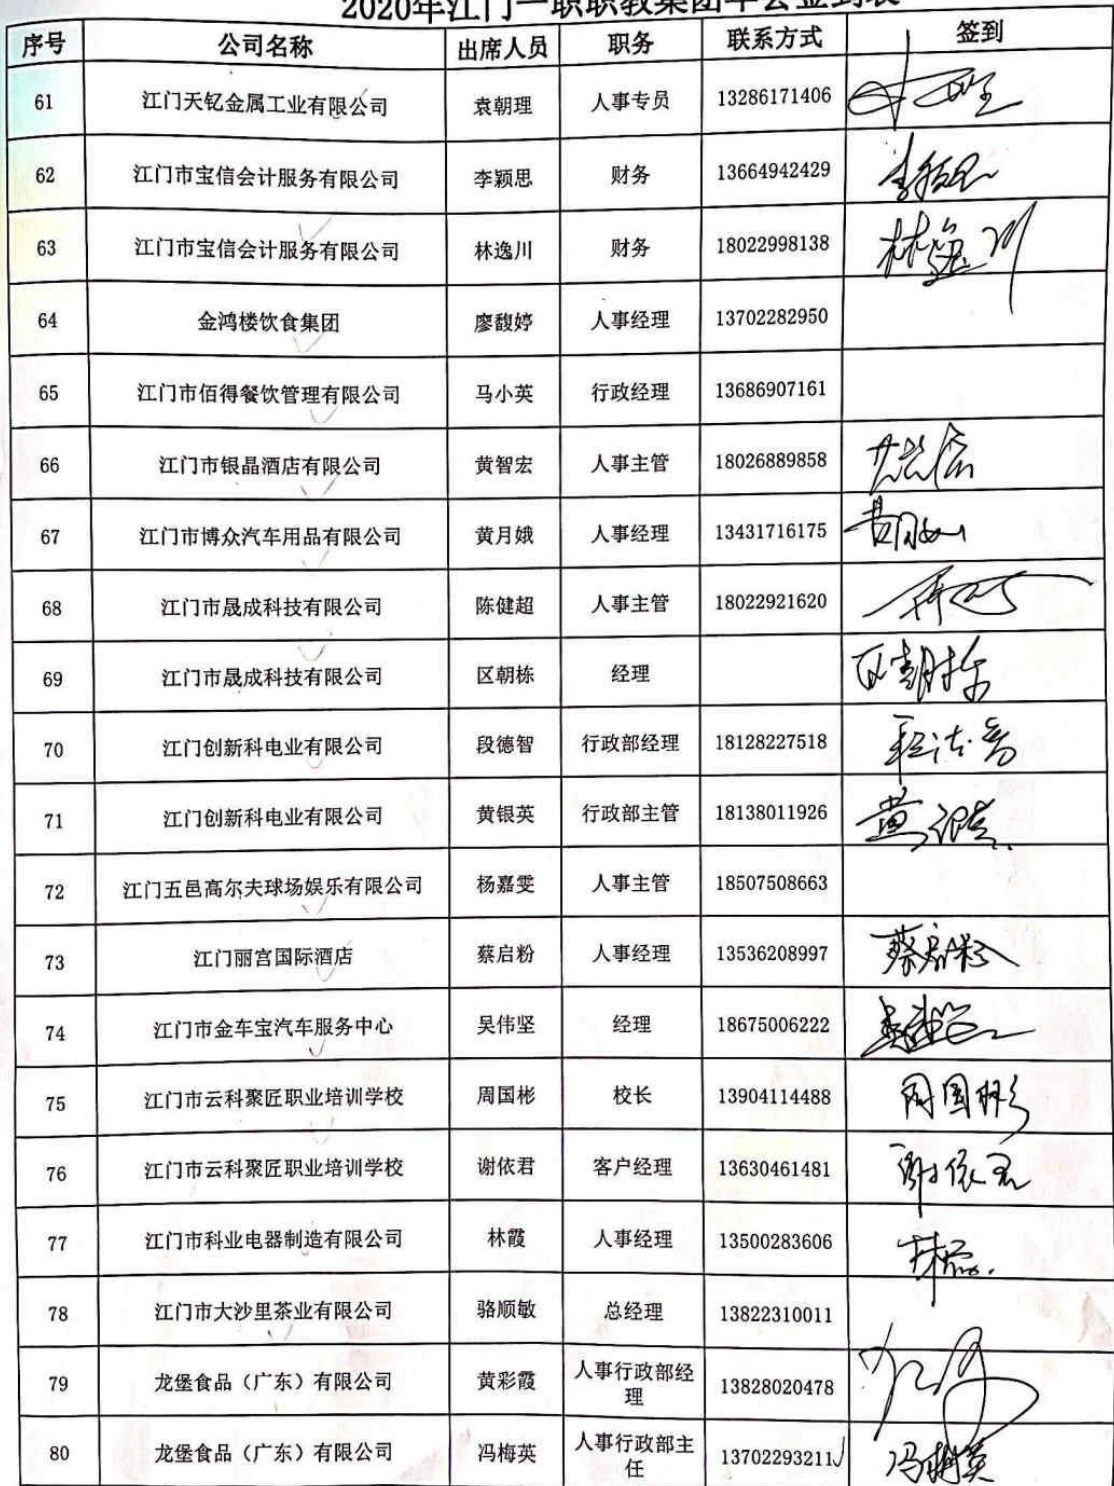 2020年江门一职职教集团年会签到表
序号 公司名称 出席人员 职务 联系方式 签到
61 江门天钇金属工业有限公司 袁朝理 人事专员 13286171406
62 江门市宝信会计服务有限公司 李颖思 财务 13664942429 李颖思
63 江门市宝信会计服务有限公司 林逸川 财务 18022998138 林逸川
64 金鸿楼饮食集团 廖馥婷 人事经理 13702282950
65 江门市佰得餐饮管理有限公司 马小英 行政经理 13686907161
66 江门市银晶酒店有限公司 黄智宏 人事主管 18026889858
67 江门市博众汽车用品有限公司 黄月娥 人事经理 13431716175
68 江门市晟成科技有限公司 陈健超 人事主管 18022921620
69 江门市晟成科技有限公司 区朝栋 经理 区朝栋
70 江门创新科电业有限公司 段德智 行政部经理 18128227518 段德智
71 江门创新科电业有限公司 黄银英 行政部主管 18138011926 黄银英
72 江门五邑高尔夫球场娱乐有限公司 杨嘉雯 人事主管 18507508663
73 江门丽宫国际酒店 蔡启粉 人事经理 13536208997 蔡启粉
74 江门市金车宝汽车服务中心 吴伟坚 经理 18675006222
75 江门市云科聚匠职业培训学校 周国彬 校长 13904114488 周国彬
76 江门市云科聚匠职业培训学校 谢依君 客户经理 13630461481 谢依君
77 江门市科业电器制造有限公司 林霞 人事经理 13500283606 林霞
78 江门市大沙里茶业有限公司 骆顺敏 总经理 13822310011
79 龙堡食品（广东）有限公司 黄彩霞 人事行政部经 13828020478
理
80 龙堡食品（广东）有限公司 冯梅英 人事行政部主 13702293211 冯梅英
任